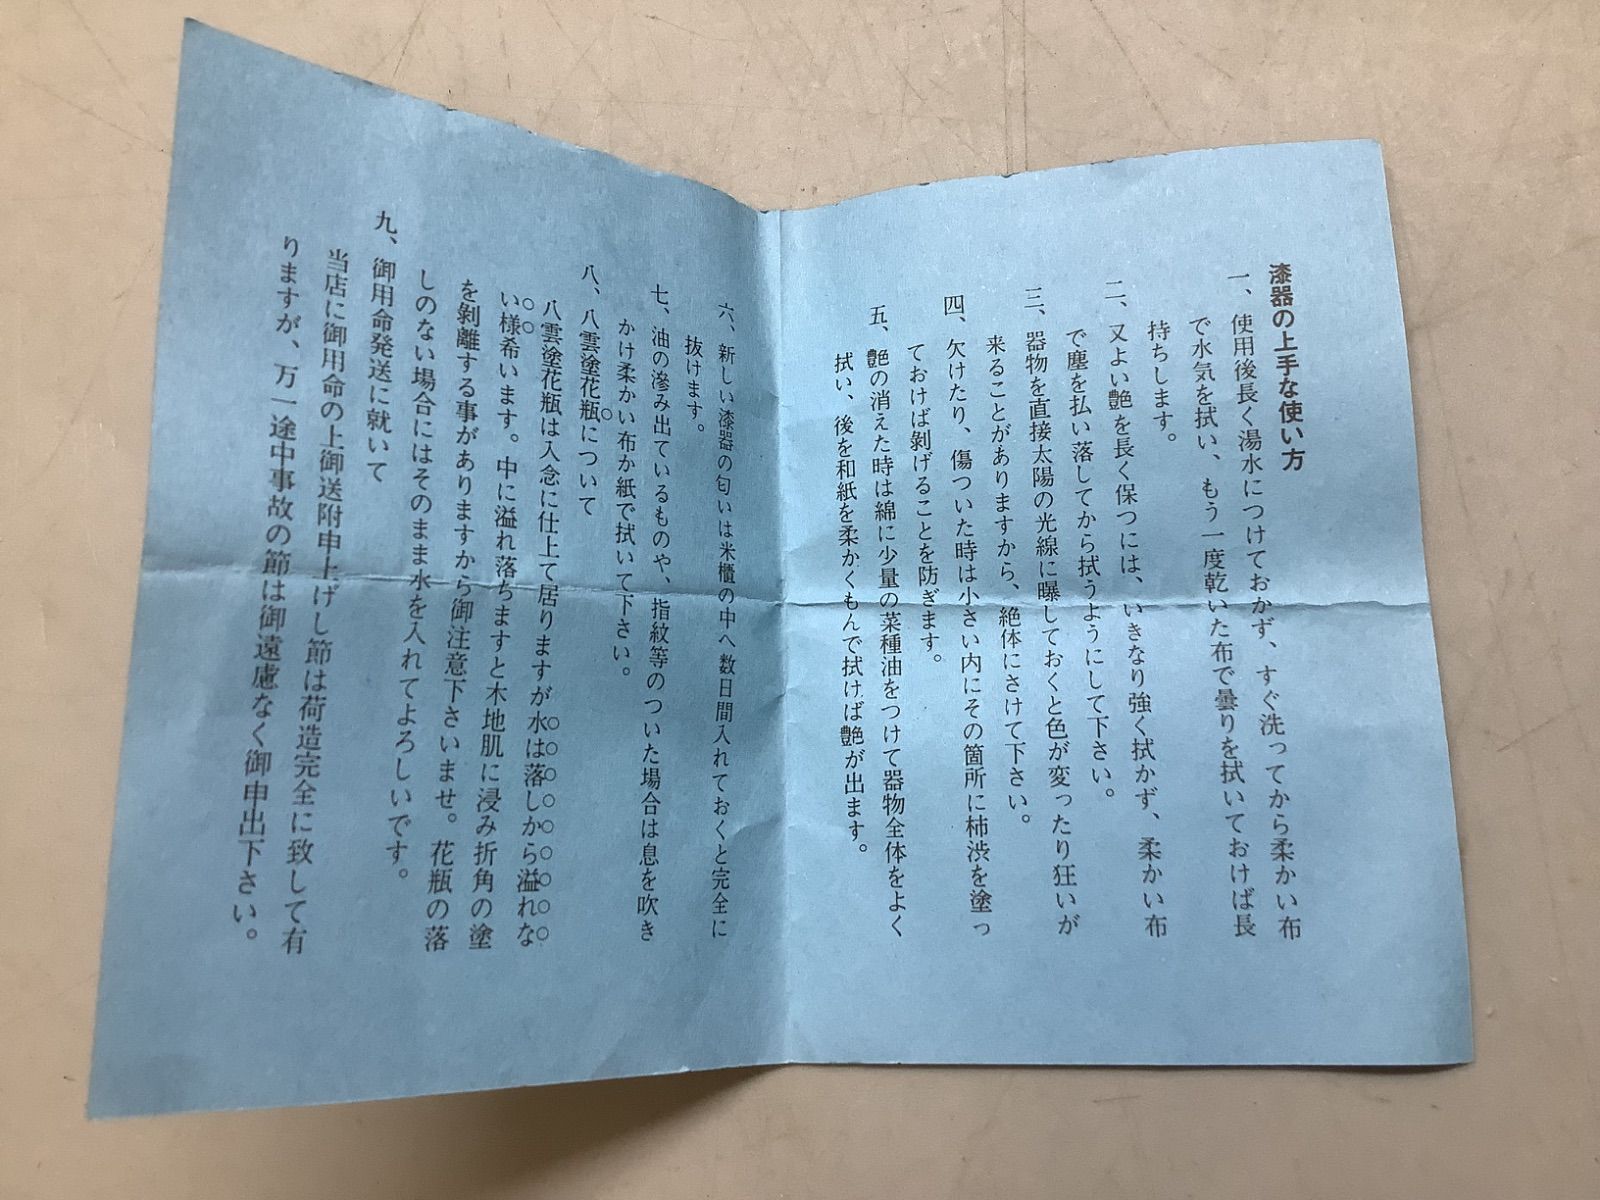 漆器の上手な使い方
一、使用後長く湯水につけておかず、すぐ洗ってから柔かい布
で水気を拭い、もう一度乾いた布で曇りを拭いておけば長
持ちします。
二、又よい艶を長く保つには、いきなり強く拭かず、柔かい布
で塵を払い落してから拭うようにして下さい。
三、器物を直接太陽の光線に曝しておくと色が変ったり狂いが
来ることがありますから、絶体にさけて下さい。
四、欠けたり、傷ついた時は小さい内にその箇所に柿渋を塗っ
ておけば剝げることを防ぎます。
五、艶の消えた時は綿に少量の菜種油をつけて器物全体をよく
拭い、後を和紙を柔かくもんで拭けば艶が出ます。
六、新しい漆器の匂いは米櫃の中へ数日間入れておくと完全に
抜けます。
七、油の滲み出ているものや、指紋等のついた場合は息を吹き
かけ柔かい布か紙で拭いて下さい。
八、八雲塗花瓶について
八雲塗花瓶は入念に仕上て居りますが水は落しから溢れな
い様希います。中に溢れ落ちますと木地肌に浸み折角の塗
を剝離する事がありますから御注意下さいませ。花瓶の落
しのない場合にはそのまま水を入れてよろしいです。
九、御用命発送に就いて
当店に御用命の上御送附申上げし節は荷造完全に致して有
りますが、万一途中事故の節は御遠慮なく御申出下さい。